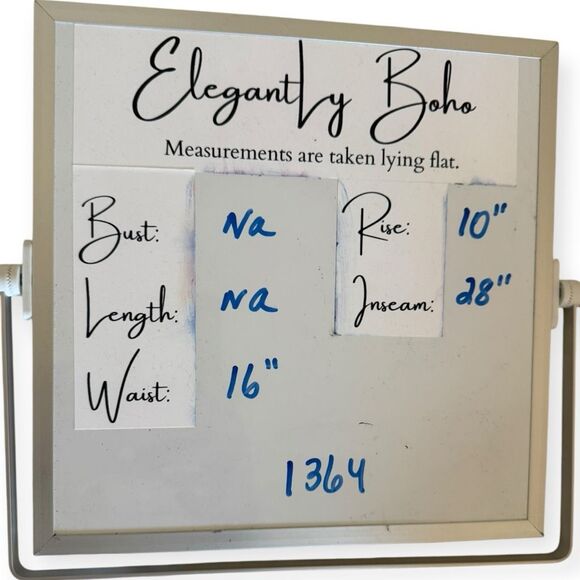 Elegantly Boho
Measurements are taken lying flat.
Bust: Na Rise: 10"
Length: Na Inseam: 28"
Waist: 16"
1364